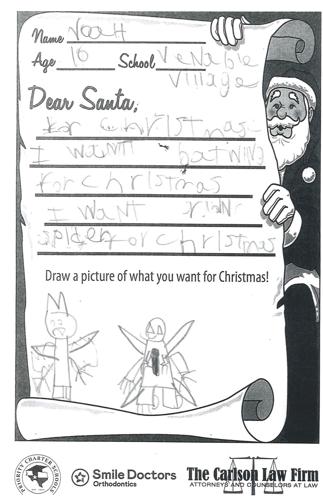 Name Noah
Age 10 School Venable
Village
Dear Santa,
for christmas
I want batwing
for christmas
I want
spider for christmas
Draw a picture of what you want for Christmas!
PRIORITY CHARTER SCHOOLS
Smile Doctors
Orthodontics
The Carlson Law Firm
ATTORNEYS AND COUNSELORS AT LAW